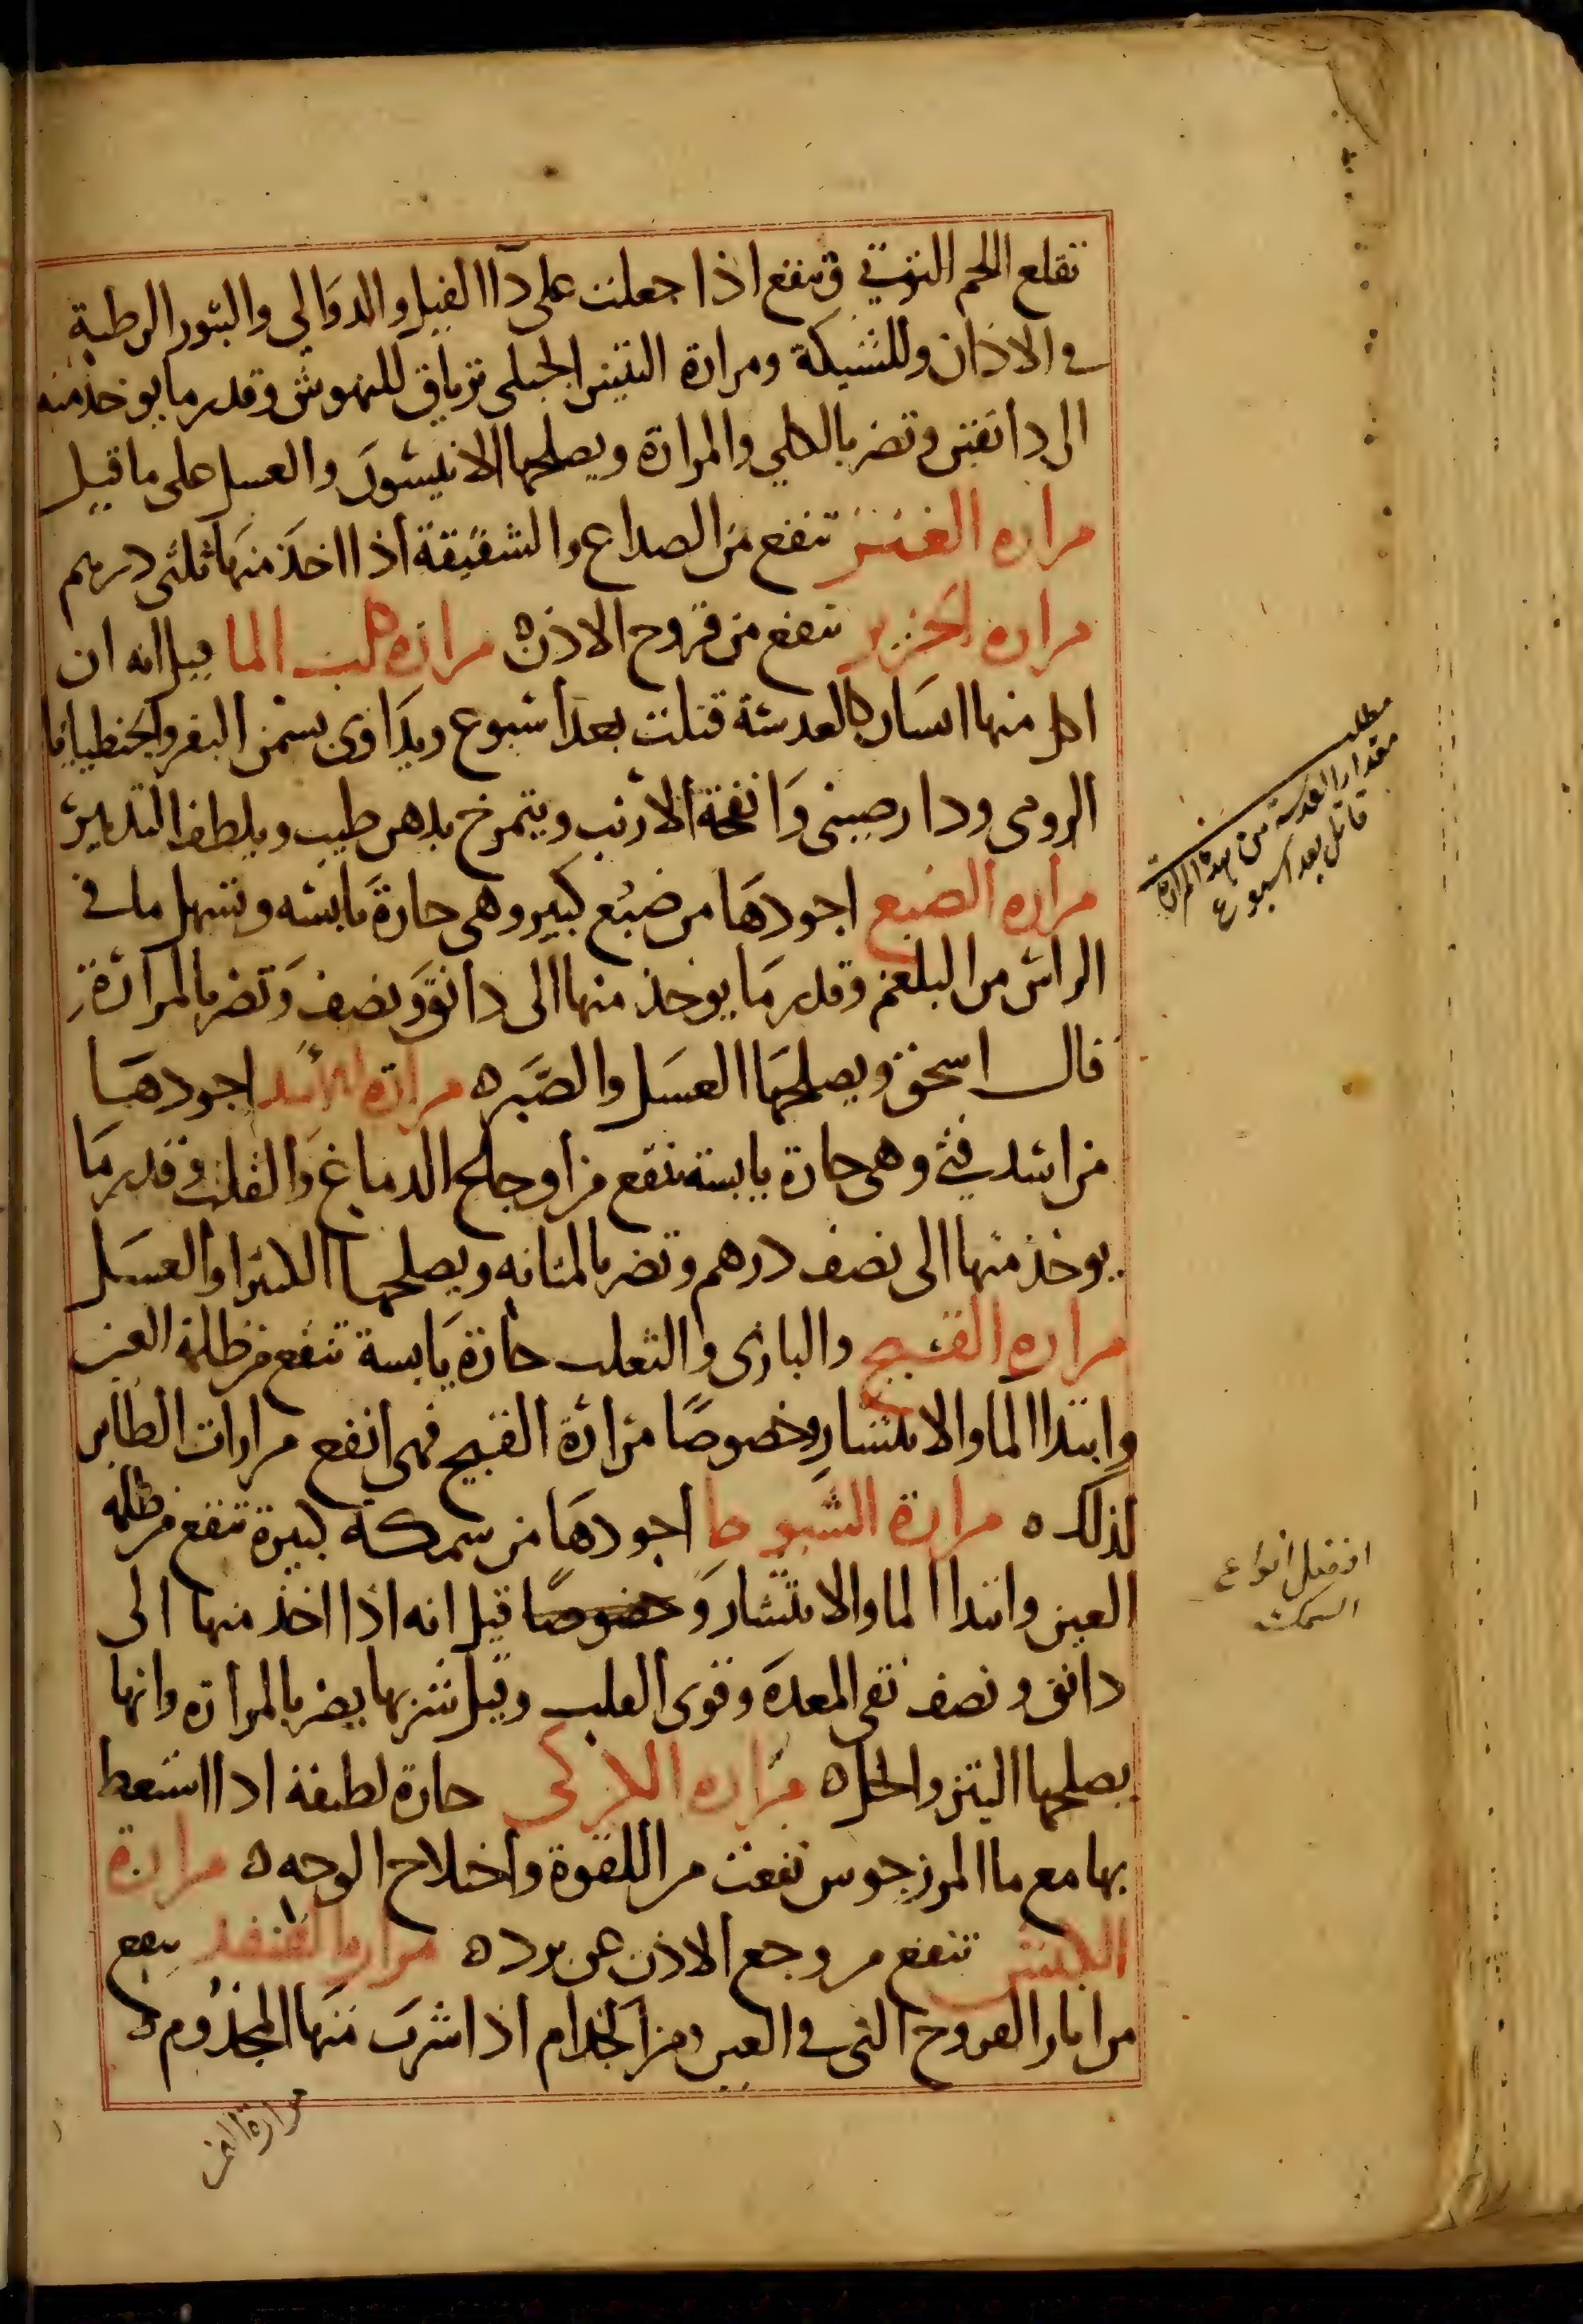 تقلع اللحم التوثي وتنفع اذا جعلت على دآ الفيل والدوالي والبثور الرطبة
في الاذان وللشبكة ومرارة التيس الجبلي ترياق للنهوش وقدر ما يوخذ منه
الى دانقين وتضر بالكلي والمرارة ويصلحها الانيسون والعسل على ما قيل
مراره تنفع من الصداع والشقيقة اذا اخذ منها ثلثي درهم
مراره الخنزير تنفع من قروح الاذن ه مرارة كلب الما قيل انه ان
اكل منها انسان كالعدسة قتلت بعد اسبوع ويداوى بسمن البقر والجنطيانا
الرومى ودارصينى وانفحة الارنب ويتمرخ بدهن طيب ويلطف التدبير
مراره الضبع اجودها من ضبع كبير وهى حارة يابسه وتسهل ما في
الراس من البلغم وقدر ما يوخذ منها الى دانق ونصف وتضر بالمرارة
قال اسحق ويصلحها العسل والصبر ه مرارة الاسد اجودها
من اسد فتي وهى حارة يابسة تنفع من اوجاع الدماغ والقلب وقدر ما
يوخذ منها الى نصف درهم وتضر بالمثانه ويصلحها الكثيرا والعسل
مراره القبج والبازى والثعلب حارة يابسة تنفع من ظلمة العين
وابتدا الما والانتشار وخصوصا مرارة القبج فهى انفع مرارات الطاير
لذلك ه مرارة الشبوط اجودها من سمكة كبيرة تنفع من ظلمه
العين وابتدا الما والانتشار وخصوصا قيل انه اذا اخذ منها الى
دانق ونصف نقى المعدة وقوى القلب وقيل شربها يضر بالمراره وانها
يصلحها التين والخل ه مراره الكركى حارة لطيفة اذا استعط
بها مع ما المرزجوس نفعت من اللقوة واختلاج الوجه ه مرارة
الكبش تنفع من وجع الاذن عن برد ه مراره القنفد ينفع
من اثار القروح التى في العين ومن الجذام اذا شرب منها المجذوم ه
مرارة
مطلب
مقدار العدسة من هذه المرارة
قاتل بعد اسبوع
افضل انواع
السمك